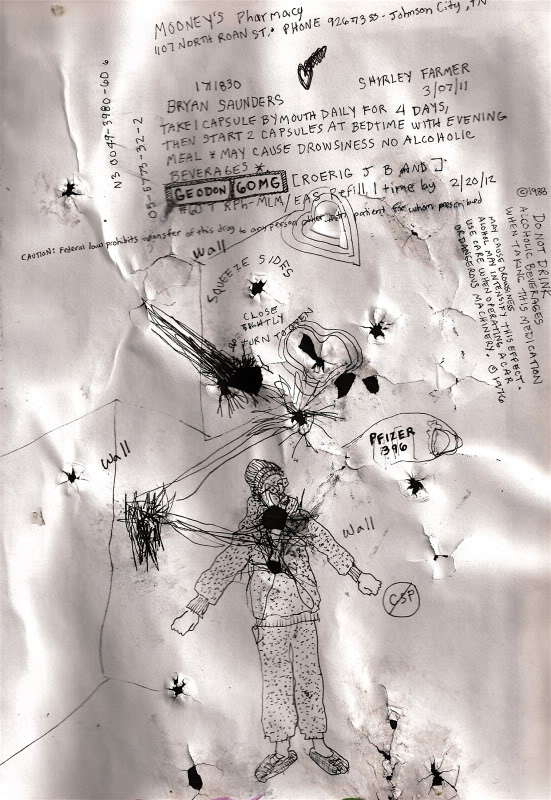 MOONEY'S Pharmacy
1107 NORTH ROAN ST. • PHONE 9267333 - Johnson City, TN
171830
SHIRLEY FARMER
BRYAN SAUNDERS
3/07/11
TAKE 1 CAPSULE BY MOUTH DAILY FOR 4 DAYS,
THEN START 2 CAPSULES AT BEDTIME WITH EVENING
MEAL * MAY CAUSE DROWSINESS NO ALCOHOLIC
BEVERAGES *
GEODON 60MG [ROERIG J B AND]
#60 T RPh-MLM/EAS Refill 1 time by 2/20/12
CAUTION: Federal law prohibits transfer of this drug to any person other than patient for whom prescribed
N3 0049-3980-60 6
05-5773-32-2
©1988
DO NOT DRINK
ALCOHOLIC BEVERAGES
WHEN TAKING THIS MEDICATION
MAY CAUSE DROWSINESS
ALCOHOL MAY INTENSIFY THIS EFFECT.
USE CARE WHEN OPERATING A CAR
OR DANGEROUS MACHINERY. ©1976
Wall
SQUEEZE SIDES
CLOSE
TIGHTLY
TURN TO OPEN
PFIZER
396
Wall
Wall
CSP